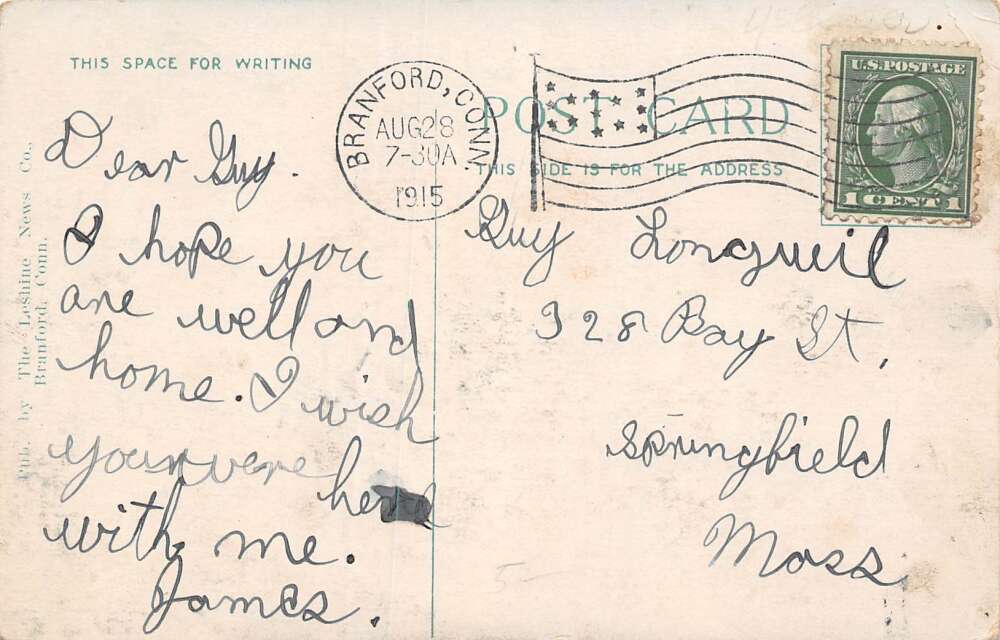 THIS SPACE FOR WRITING
Dear Guy.
I hope you
are well and
home. I wish
your were
here
with me.
James.
Pub. by The Leshine News Co.,
Branford, Conn.
BRANFORD, CONN.
AUG 28
7-30A
1915
POST CARD
THIS SIDE IS FOR THE ADDRESS
U.S. POSTAGE
1 CENT 1
Guy Longueil
328 Bay St,
Springfield
Mass.